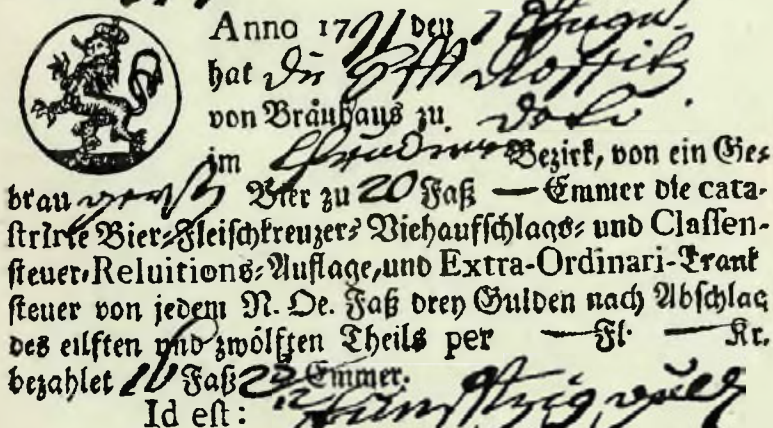 Anno 1771 den 1 Augu.
hat die
von Bräuhaus zu
im Bezirk, von ein Ge⸗
bräu Bier zu 20 Faß — Emmer die cata-
strirte Bier⸗Fleischkreuzer⸗ Viehaufschlags⸗ und Classen-
steuer⸗Reluitions⸗Auflage, und Extra-Ordinari-Trank
steuer von jedem N. Oe. Faß drey Gulden nach Abschlag
des eilften und zwölften Theils per — Fl. — Kr.
bezahlet Faß Emmer.
Id est: